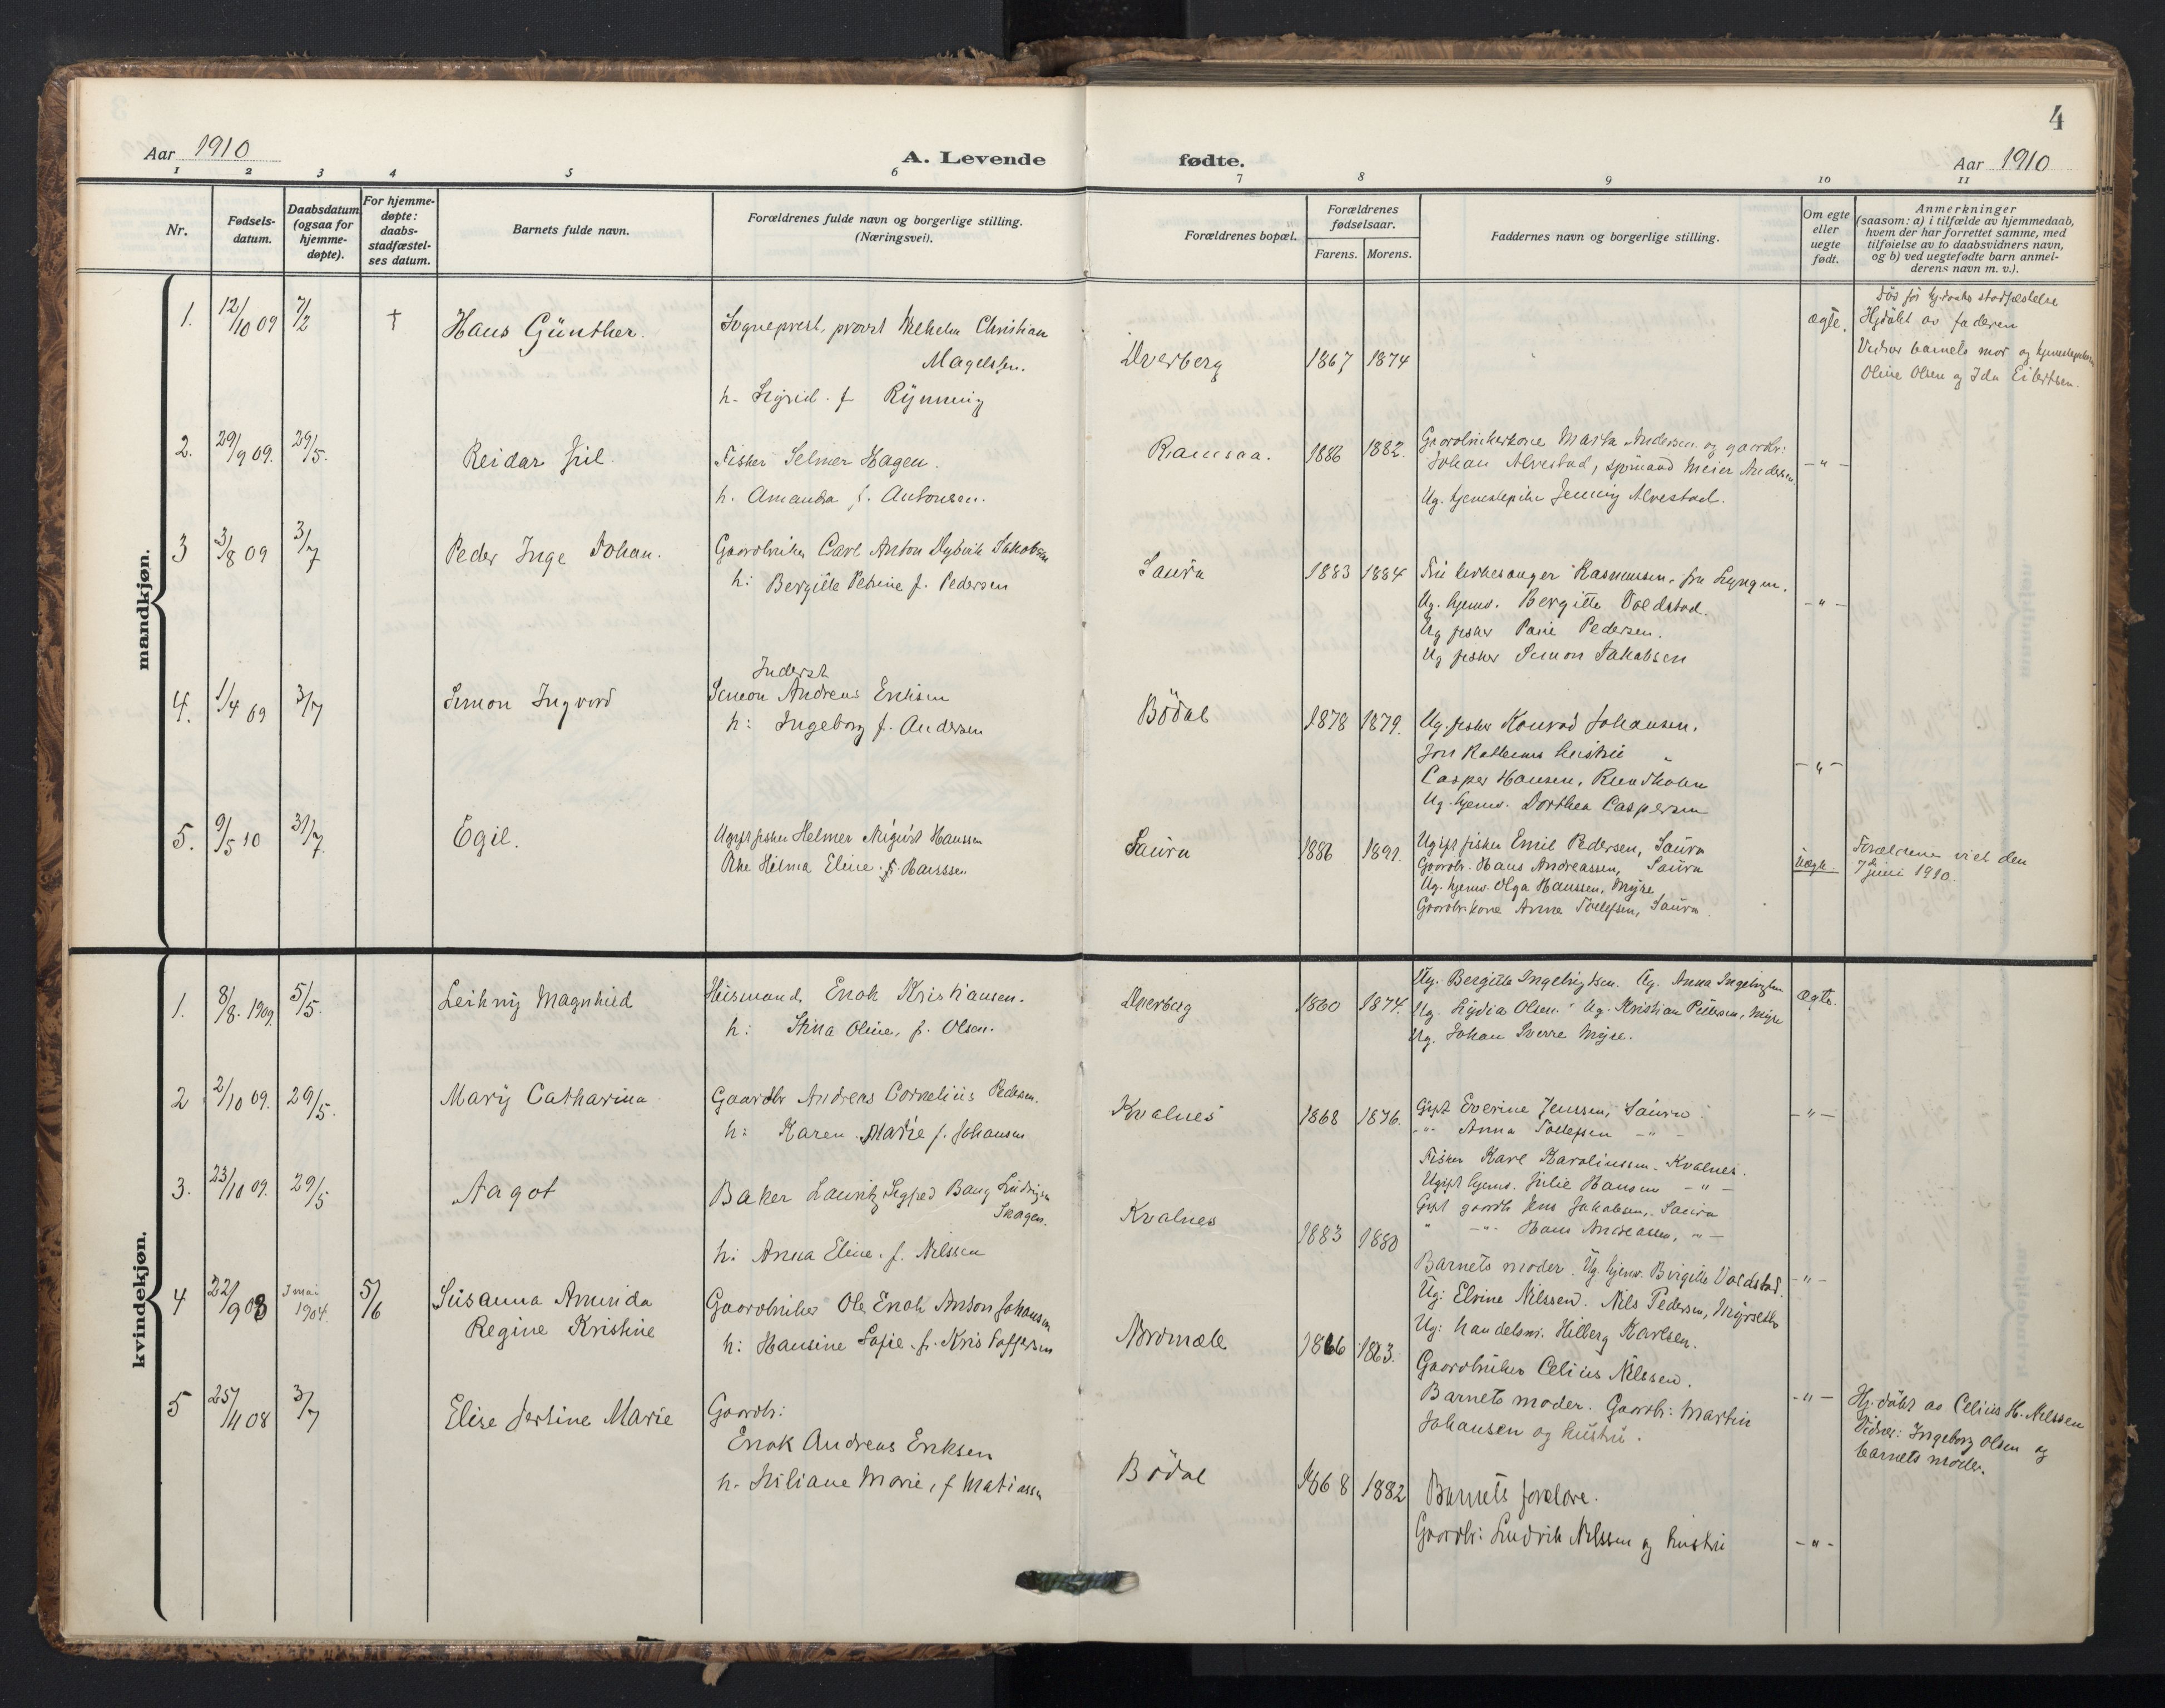 4
Aar 1910
A. Levende
fødte.
Aar 1910
1 2 3 4 5 6 7 8 9 10 11
Nr.
Fødsels-
datum.
Daabsdatum
(ogsaa for
hjemme-
døpte).
For hjemme-
døpte:
daabs-
stadfæstel-
ses datum.
Barnets fulde navn.
Forældrenes fulde navn og borgerlige stilling.
(Næringsvei).
Forældrenes bopæl.
Forældrenes
fødselsaar.
Farens. Morens.
Faddernes navn og borgerlige stilling.
Om egte
eller
uegte
født.
Anmerkninger
(saasom: a) i tilfælde av hjemmedaab,
hvem der har forrettet samme, med
tilføielse av to daabsvidners navn,
og b) ved uegtefødte barn anmel-
derens navn m. v.).
mandkjøn.
1. 12/10 09 7/2 † Hans Günther.
Sogneprest, provst Wilhelm Christian
Magelssen.
h. Sigrid f. Rynning
Dverberg 1867 1874 ægte.
Død før hjdaabs stadfæstelse
Hjdøbt av faderen
Vidner barnets mor og
Oline Olsen og Ida Eilertsen.
2. 29/9 09. 29/5. Reidar Jul
Fisker Selmer Hagen.
h. Amanda f. Antonsen.
Ramsaa. 1886 1882.
Gaardbrukerkone Marta Andersen og gaardbr:
Johan Alvestad, sjømand Meier Andersen
Ug. hjemslepike Jenny Alvestad.
— " —
3 3/8 09 3/7 Peder Inge Johan.
Gaardbruker Carl Anton Dybvik Jakobsen
h: Bergitte Petrine f. Pedersen
Saura 1883 1884
Fru kirkesanger Rasmussen, fra Lyngen.
Ug. hjemv. Bergitte Voldstad.
Ug fisker Parie Pedersen.
Ug fisker Simon Jakobsen
— " —
4. 1/4 09 3/7 Simon Ingvard
Inderst
Simon Andreas Eriksen
h: Ingeborg f. Andersen
Bödal 1878 1879.
Ug. fisker Konrad Johansen.
Jon hustru "
Casper Hansen, Rundholm
Ug. hjemv. Dorthea Caspersen
— " —
5. 9/5 10 31/7. Egil.
Ugift fisker Helmer August Hanssen
Pike Hilma Eline f. Hanssen
Saura 1886 1891.
Ugift fisker Emil Pedersen, Saura
Gaardbr. Hans Andreassen, Saura
Ug. hjemv. Olga Hanssen, Myre
Gaardbr.kone Anne Tollefsen, Saura
Uægte.
Forældrene viet den
7de juni 1910.
kvindekjøn.
1. 8/8. 1909. 5/5. Leikny Magnhild
Husmand Enok Kristiansen.
h: Stina Oline, f. Olsen.
Dverberg 1860 1874.
Ug. Bergitte Ingebrigtsen. Ug. Anna Ingebrigtsen
Ug. Lydia Olsen. Ug. Kristian Pettersen, Myre
Ug. Johan Sverre Myre.
ægte.
2 2/10 09. 29/5. Mary Catharina
Gaardbr Andreas Cornelius Pedersen.
h: Karen Marie f. Johansen
Kvalnes 1868 1876.
Gift Everine Jenssen, Saura
-"- Anna Tollefsen — " —
Fisker Karl Karolinssen. Kvalnes.
Ugift hjemv. Julie Hansen — " —
Gift gaardb Jens Jakobsen, Saura
" -"- Hans Andreassen, " —
— " —
3. 23/10 09. 29/5 Aagot
Baker Lauritz Sigfred Bang Ludvigsen
Skagen.
h: Anna Eline. f. Nilssen
Kvalnes 1883 1880
Barnets moder. Ug. hjemv. Birgitte Voldstad.
Ug: Elvine Nilssen. Nils Pedersen,
Ug: handelsm. Hilberg Karlsen.
— " —
4 22/9 08 3 mai 1904. 5/6 Susanna Amunda
Regine Kristine
Gaardbruker Ole Enok Anton Johansen
h: Hansine Sofie. f. Kristoffersen
Nordmæle 1866 1863.
Gaardbruker Celius Nilssen.
Barnets moder. Gaardbr: Martin
Johansen og hustru.
— " —
Hj. döbt av Celius H. Nilssen
Vidner: Ingeborg Olsen og
barnets moder.
5 25/4 08 3/7 Elise Jertine Marie
Gaardbr:
Enok Andreas Eriksen
h. Juliane Marie, f Matiassen
Bödal 1868 1882
Barnets forældre.
Gaardbr: Ludvik Nilssen og hustru
— " —